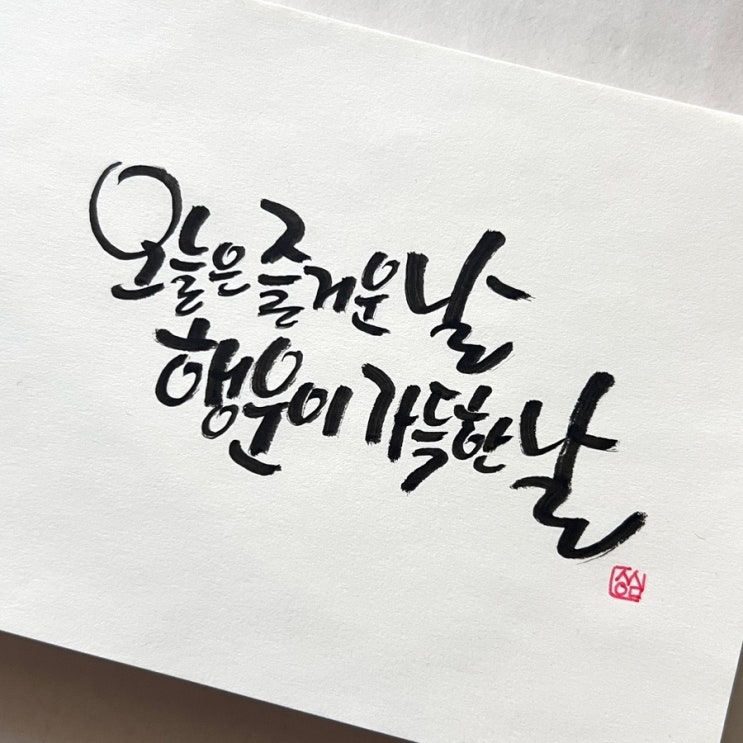 오늘은 즐거운 날
행운이 가득한 날